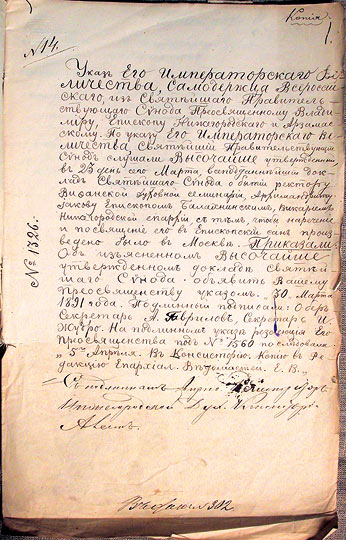 Копія
1.
N 14.
Указъ Его Императорскаго Ве-
личества, Самодержца Всероссій-
скаго, изъ Святѣйшаго Правитель-
ствующаго Сѵнода Преосвященному Влади-
міру, Епископу Нижегородскому и Арзамас-
скому. По указу Его Императорскаго Ве-
личества Святѣйшій Правительствующій
Сѵнодъ слушали Высочайше утвержденный
въ 23 день сего Марта всеподданнѣйшій док-
ладъ Святѣйшаго Сѵнода о бытіи ректору
Виѳанской духовной семинаріи, Архимандриту
Іакову Епископомъ Балахнинскимъ, Викаріемъ
Нижегородской епархіи съ тѣмъ, чтобы нареченіе
и посвященіе его въ епископскій санъ произ-
ведено было въ Москвѣ. Приказали:
Объ изъясненномъ Высочайше
утвержденномъ докладѣ Святѣй-
шаго Сѵнода объявить Вашему
преосвященству указомъ. 30 Марта
1891 года. Подлинный подписали: Оберъ
Секретарь А. Гавриловъ, Секретарь
На подлинномъ указѣ резолюція Его
Преосвященства подъ № 1560 послѣдовала
„5 Апрѣля. Въ Консисторію. Копію въ Ре-
дакцію Епархіал. Вѣдомостей. Е. В.„
Съ подлиннымъ
Нижегородской Дух.
№ 1326.